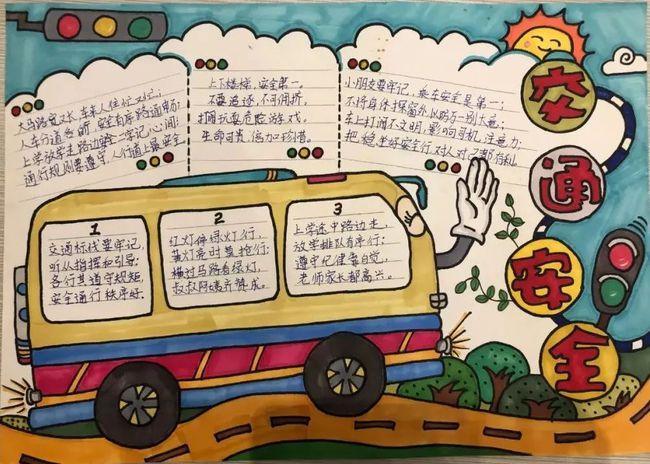 交通安全
大马路宽又长,车来人往忙又忙;
人车行道各分明,安全有序路通畅;
上学放学走路边,安全二字记心间;
通行规则要遵守,人行道上最安全
上下楼梯,安全第一,
不要追逐,不可拥挤,
打闹玩耍危险游戏,
生命可贵,倍加珍惜。
小朋友要牢记,乘车安全是第一;
不将身体探窗外,以防万一别大意;
车上打闹不文明,影响司机注意力;
把稳坐好安全行,对人对己都有利。
1
交通标线要牢记,
听从指挥和引导;
各行其道守规矩,
安全通行秩序好.
2
红灯停绿灯行,
黄灯亮时莫抢行;
横过马路看绿灯,
叔叔阿姨齐赞成。
3
上学途中路边走,
放学排队有序行;
遵守纪律要自觉,
老师家长都高兴。